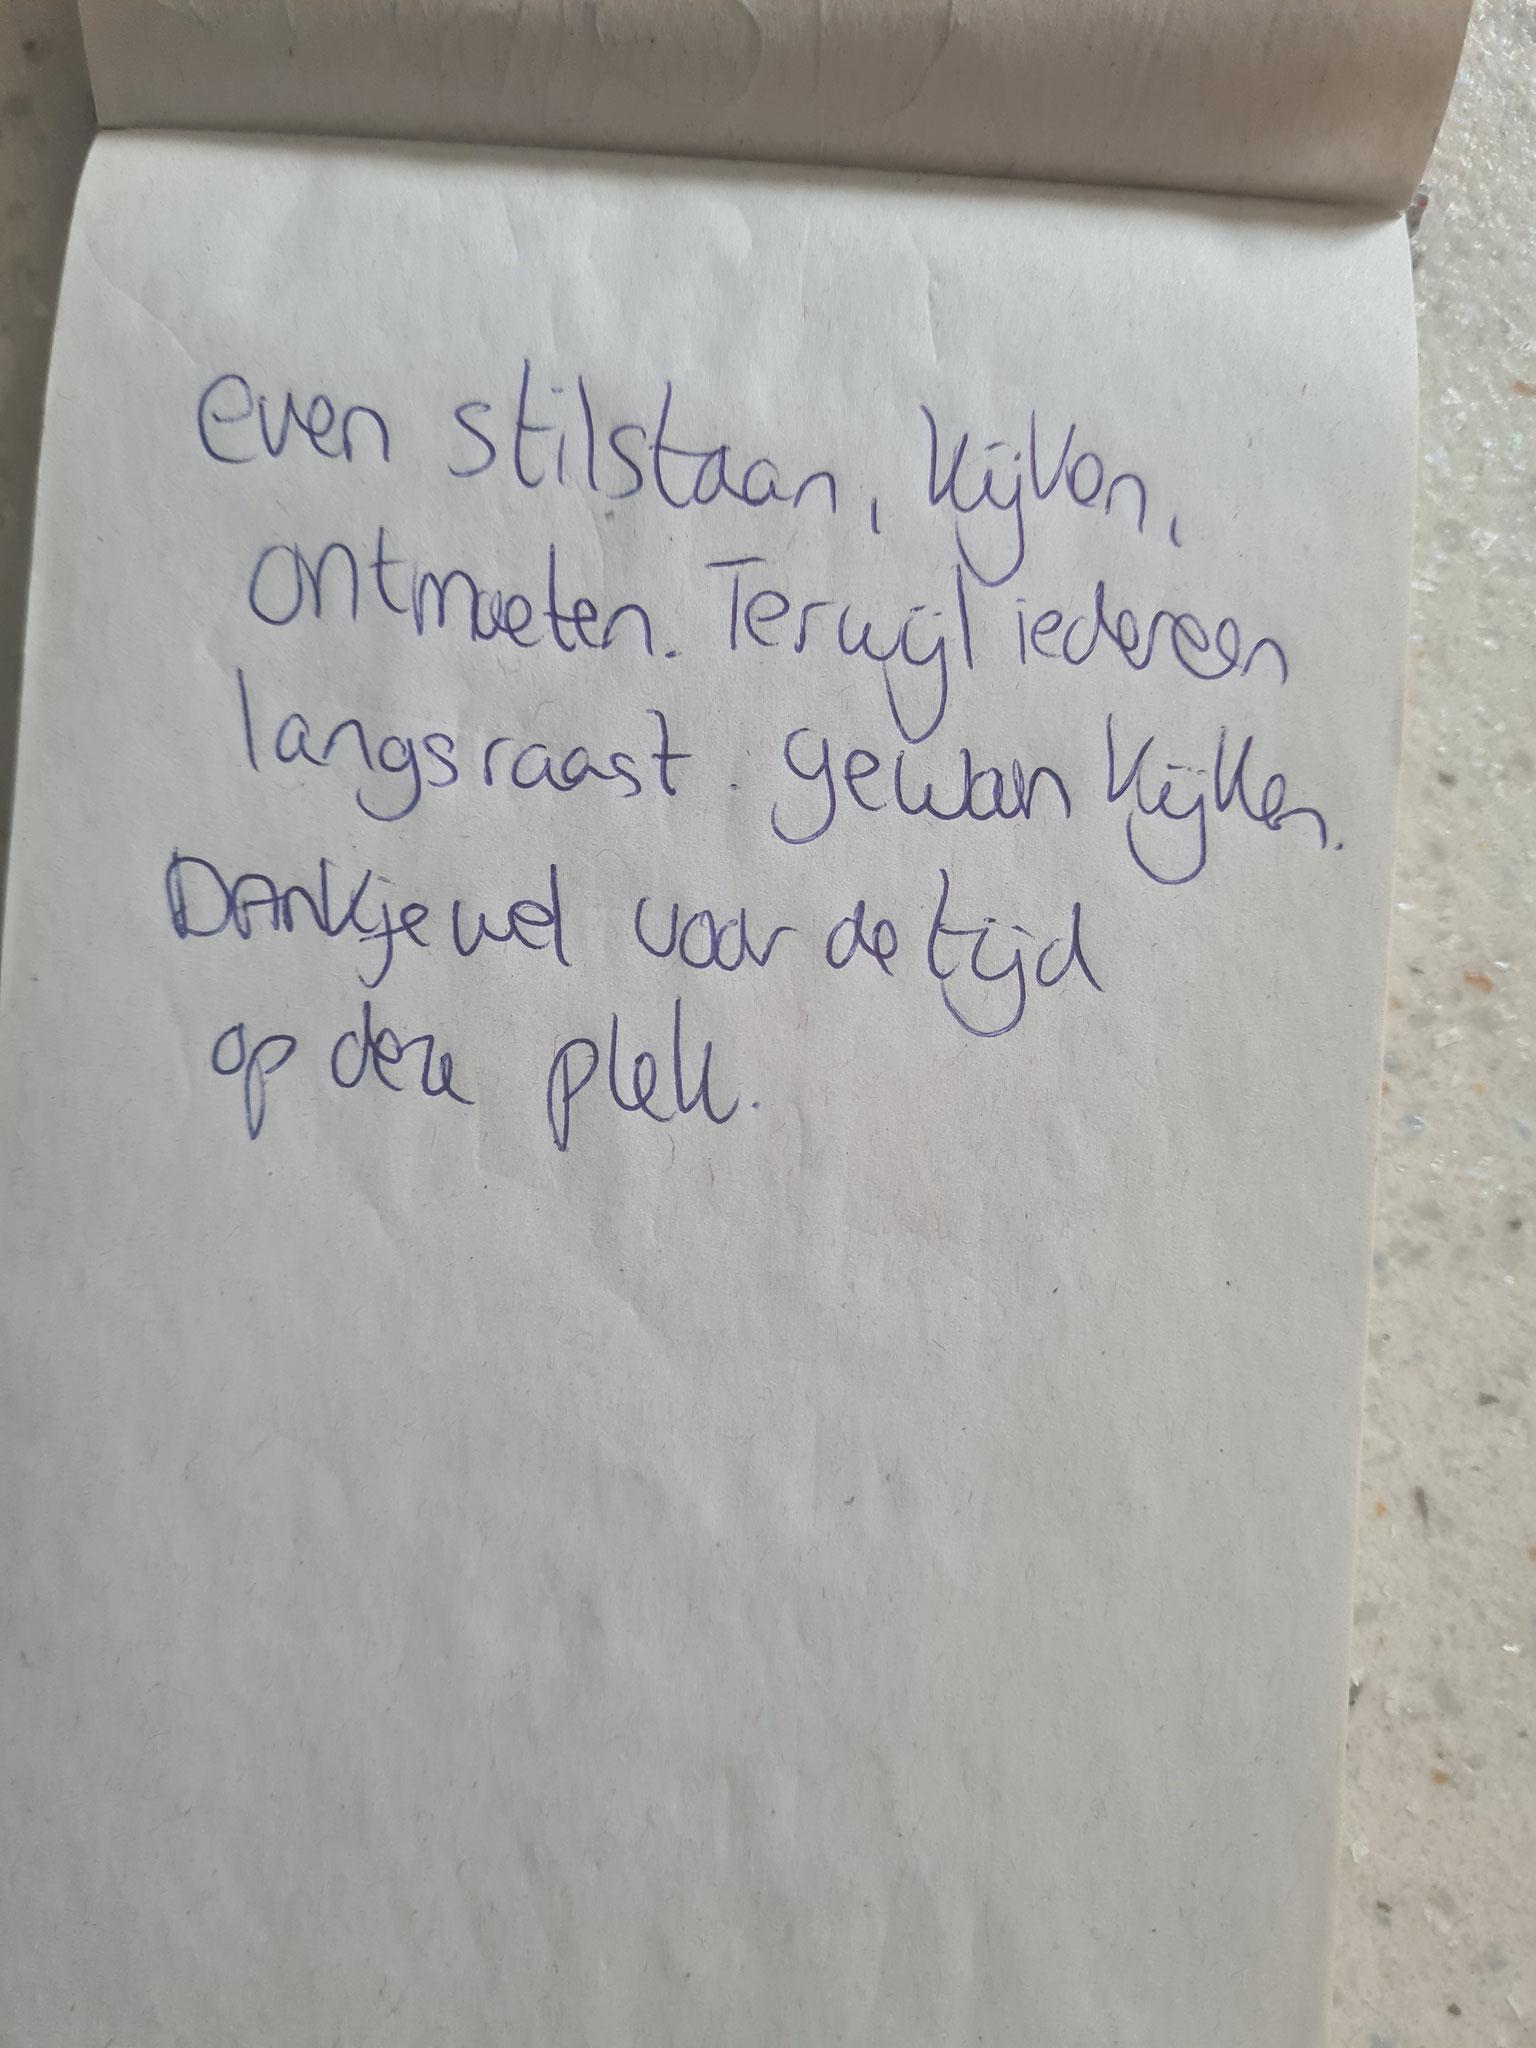 even stilstaan, kijken,
ontmoeten. Terwijl iedereen
langsraast. gewoon kijken.
DAnkjewel voor de tijd
op deze plek.